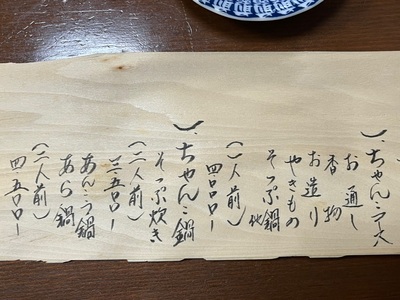 ）ちゃんこコース
お通し
香物
お造り
やきもの
そっぷ鍋
他
（一人前）
四〇〇〇ー
）ちゃんこ鍋
そっぷ炊き
（二人前）
三・五〇〇ー
あんこう鍋
あら鍋
（二人前）
四・五〇〇ー